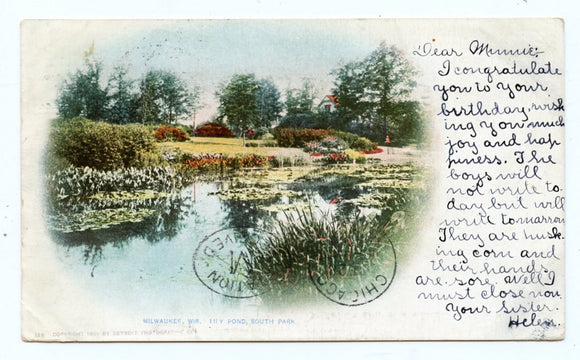 Dear Minnie:
I congratulate
you to your
birthday, wish
ing you much
joy and hap
piness. The
boys will
not write to-
day but will
write tomarrow
They are husk
ing corn and
their hands
are sore. Well I
must close now
Your sister.
Helen.
MILWAUKEE, WIS. LILY POND, SOUTH PARK
COPYRIGHT BY DETROIT PHOTOGRAPHIC CO.
RECEIVED
STATION
CHICAGO